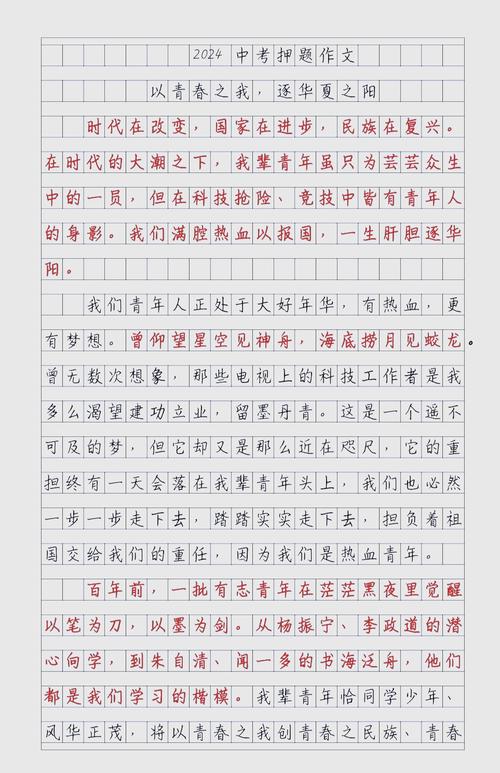 2024 中考押题作文
以青春之我，逐华夏之阳
时代在改变，国家在进步，民族在复兴。
在时代的大潮之下，我辈青年虽只为芸芸众生
中的一员，但在科技抢险、竞技中皆有青年人
的身影。我们满腔热血以报国，一生肝胆逐华
阳。
我们青年人正处于大好年华，有热血，更
有梦想。曾仰望星空见神舟，海底捞月见蛟龙。
曾无数次想象，那些电视上的科技工作者是我
多么渴望建功立业，留墨丹青。这是一个遥不
可及的梦，但它却又是那么近在咫尺，它的重
担终有一天会落在我辈青年头上，我们也必然
一步一步走下去，踏踏实实走下去，担负着祖
国交给我们的重任，因为我们是热血青年。
百年前，一批有志青年在茫茫黑夜里觉醒
以笔为刀，以墨为剑。从杨振宁、李政道的潜
心向学，到朱自清、闻一多的书海泛舟，他们
都是我们学习的楷模。我辈青年恰同学少年、
风华正茂，将以青春之我创青春之民族、青春